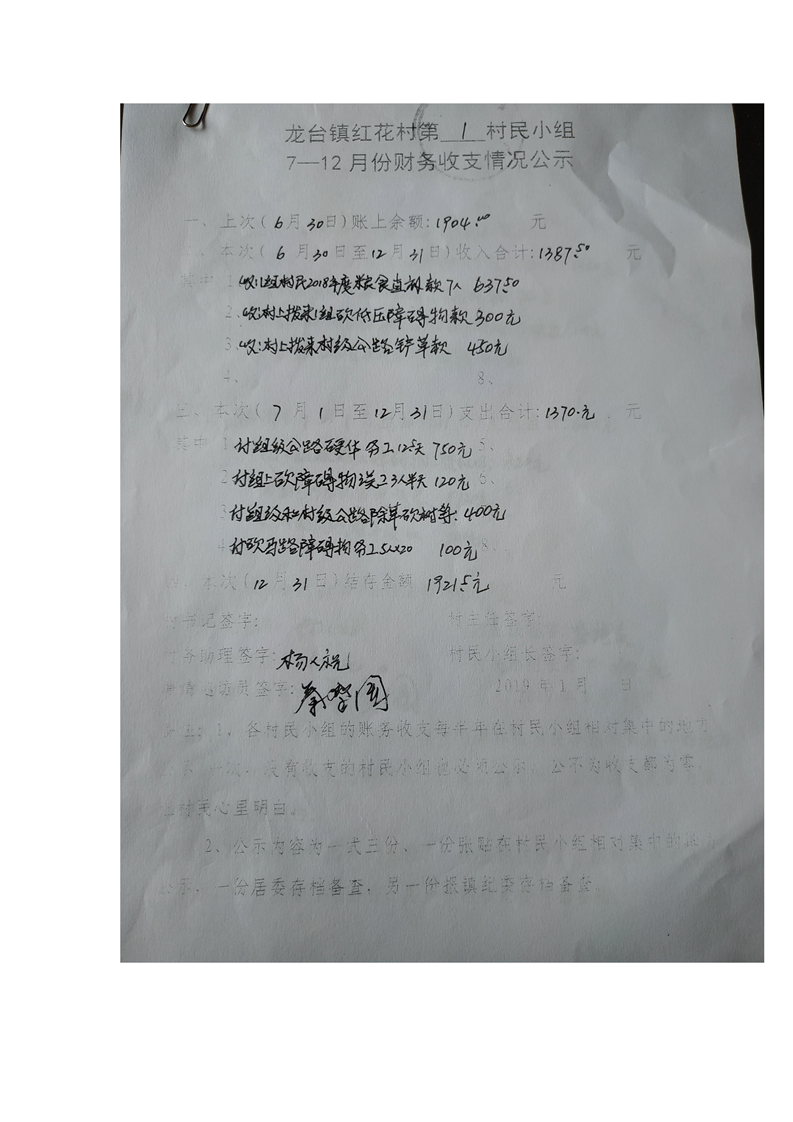 龙台镇红花村第 1 村民小组
7—12月份财务收支情况公示
一、上次(6月30日)账上余额:1904.00 元
、本次(6月30日至12月31日)收入合计:1387.50 元
其中1、收1组村民2018年度粮食直补款7人 637.50
2、收:村上拨来1组砍低压障碍物款 300元
3、收:村上拨来村级公路铲草款 450元
4、 8、
三、本次(7月1日至12月31日)支出合计:1370.元 元
其中1、付组级公路硬化务工12.5天 750元 5、
2、付组上砍障碍物误工3人半天 120元 6、
3付组级和村级公路除草砍树等:400元
4、付砍马路障碍物务工5人x20 100元 8、
、本次(12月31日)结存金额 1921.5元 元
村书记签字: 村主任签字:
村务助理签字:杨 村民小组长签字:
员签字:秦
2019年1月 日
注:1、各村民小组的账务收支每半年在村民小组相对集中的地方
公示一次,没有收支的村民小组也必须公示,公示为收支都为零,
让村民心里明白。
2、公示内容为一式三份,一份张贴在村民小组相对集中的地方
公示,一份居委存档备查,另一份报镇纪委存档备查。